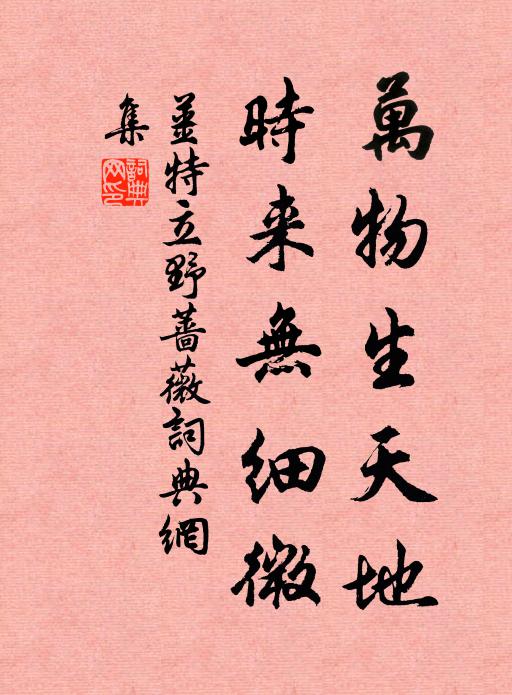 萬物生天地
時来無細微
姜特立野薔薇詞典網
集
詞典
网印